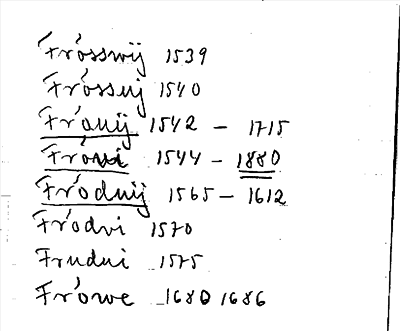 Frósswij 1539
Fróssuj 1540
Frónij 1542 – 1715
Fróni 1544 – 1880
Fródnij 1565 – 1612
Fródvi 1570
Frudni 1575
Frówe 1680 1686